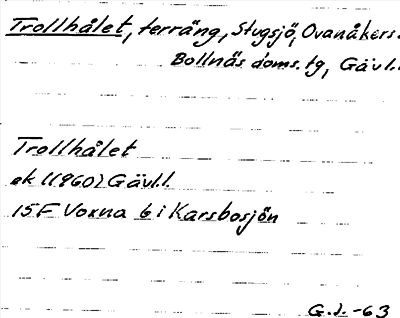 Trollhålet, terräng, Stugsjö, Ovanåkers.
Bollnäs doms. tg, Gävl.
Trollhålet
ek (1960) Gävl.l.
15F Voxna 6 i Karsbosjön
G.J. -63